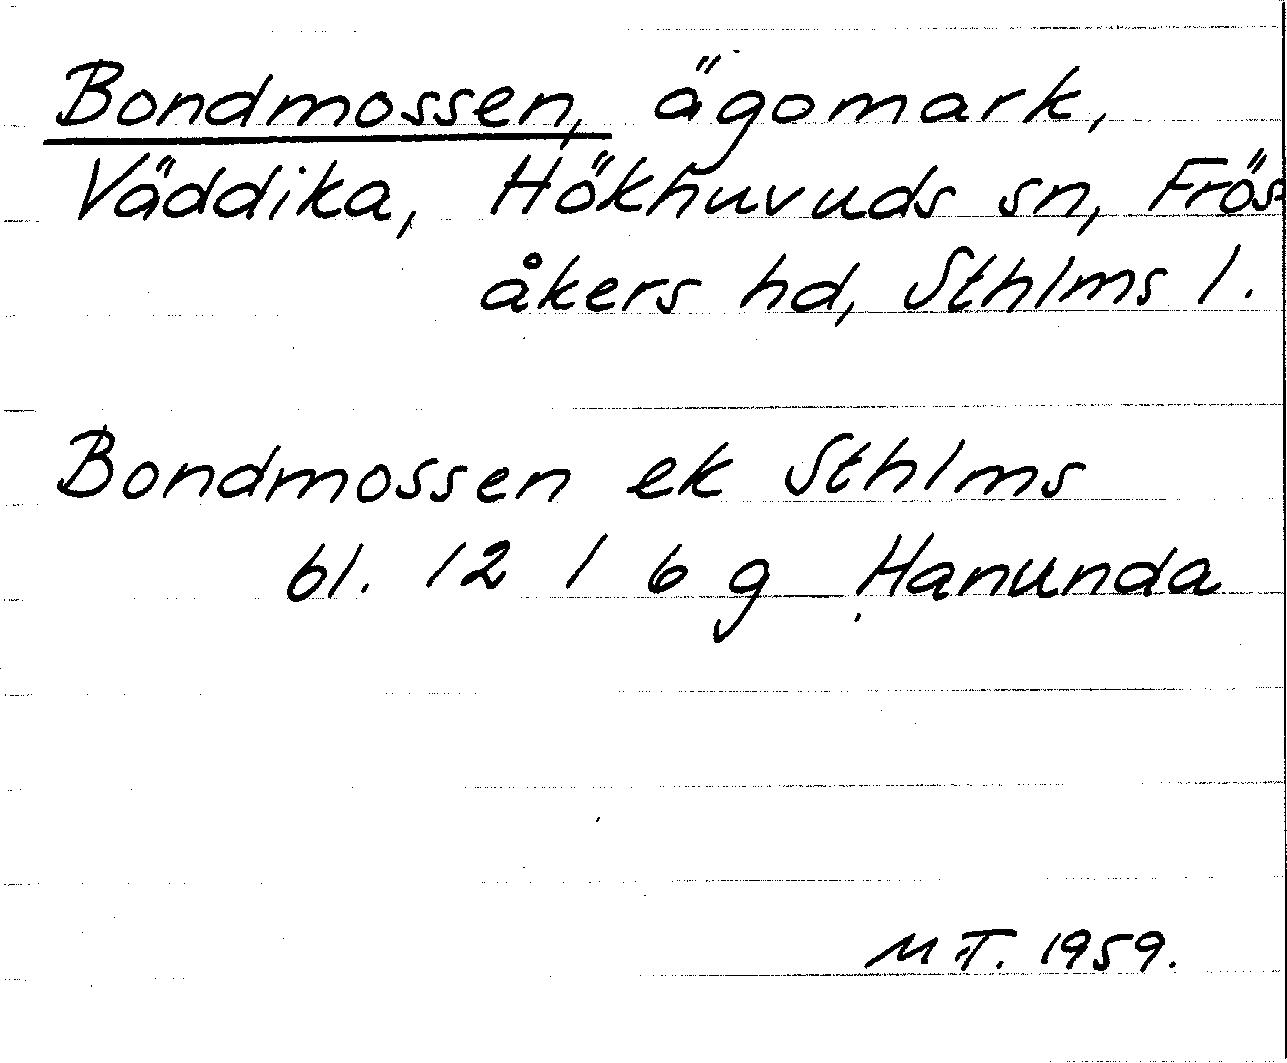 Bondmossen, ägomark,
Väddika, Hökhuvuds sn, Frös-
åkers hd, Sthlms l.
Bondmossen ek Sthlms
bl. 12 I 6 g Hanunda
M T. 1959.